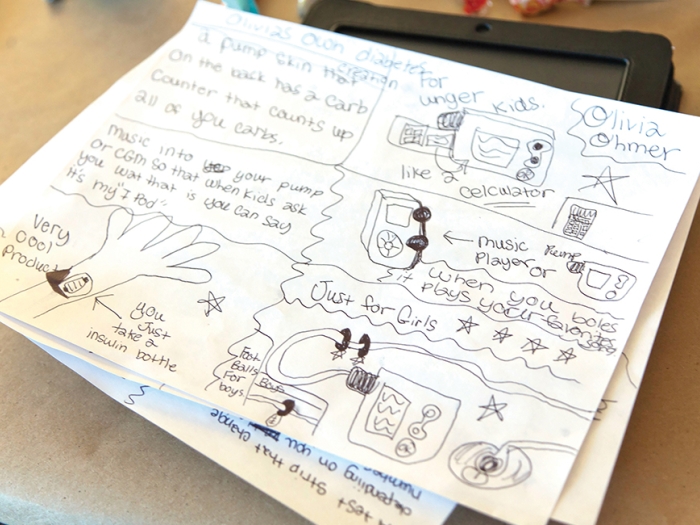 Olivia's Own diabetes
creation
a pump skin that
On the back has a carb
Counter that counts up
all of you carbs.
for
unger kids.
Olivia
Ohmer
like a
Celculator
music into your pump
or CGM so that when kids ask
you wat that is you can say
it's my "I Pod"
music
Player or
Pump
when you boles
it plays your favorite
Very
Cool
Product
you
just
take a
insulin bottle
Just for Girls
Foot
Balls
For
boys
Boys
test strip that change
depending on you
number